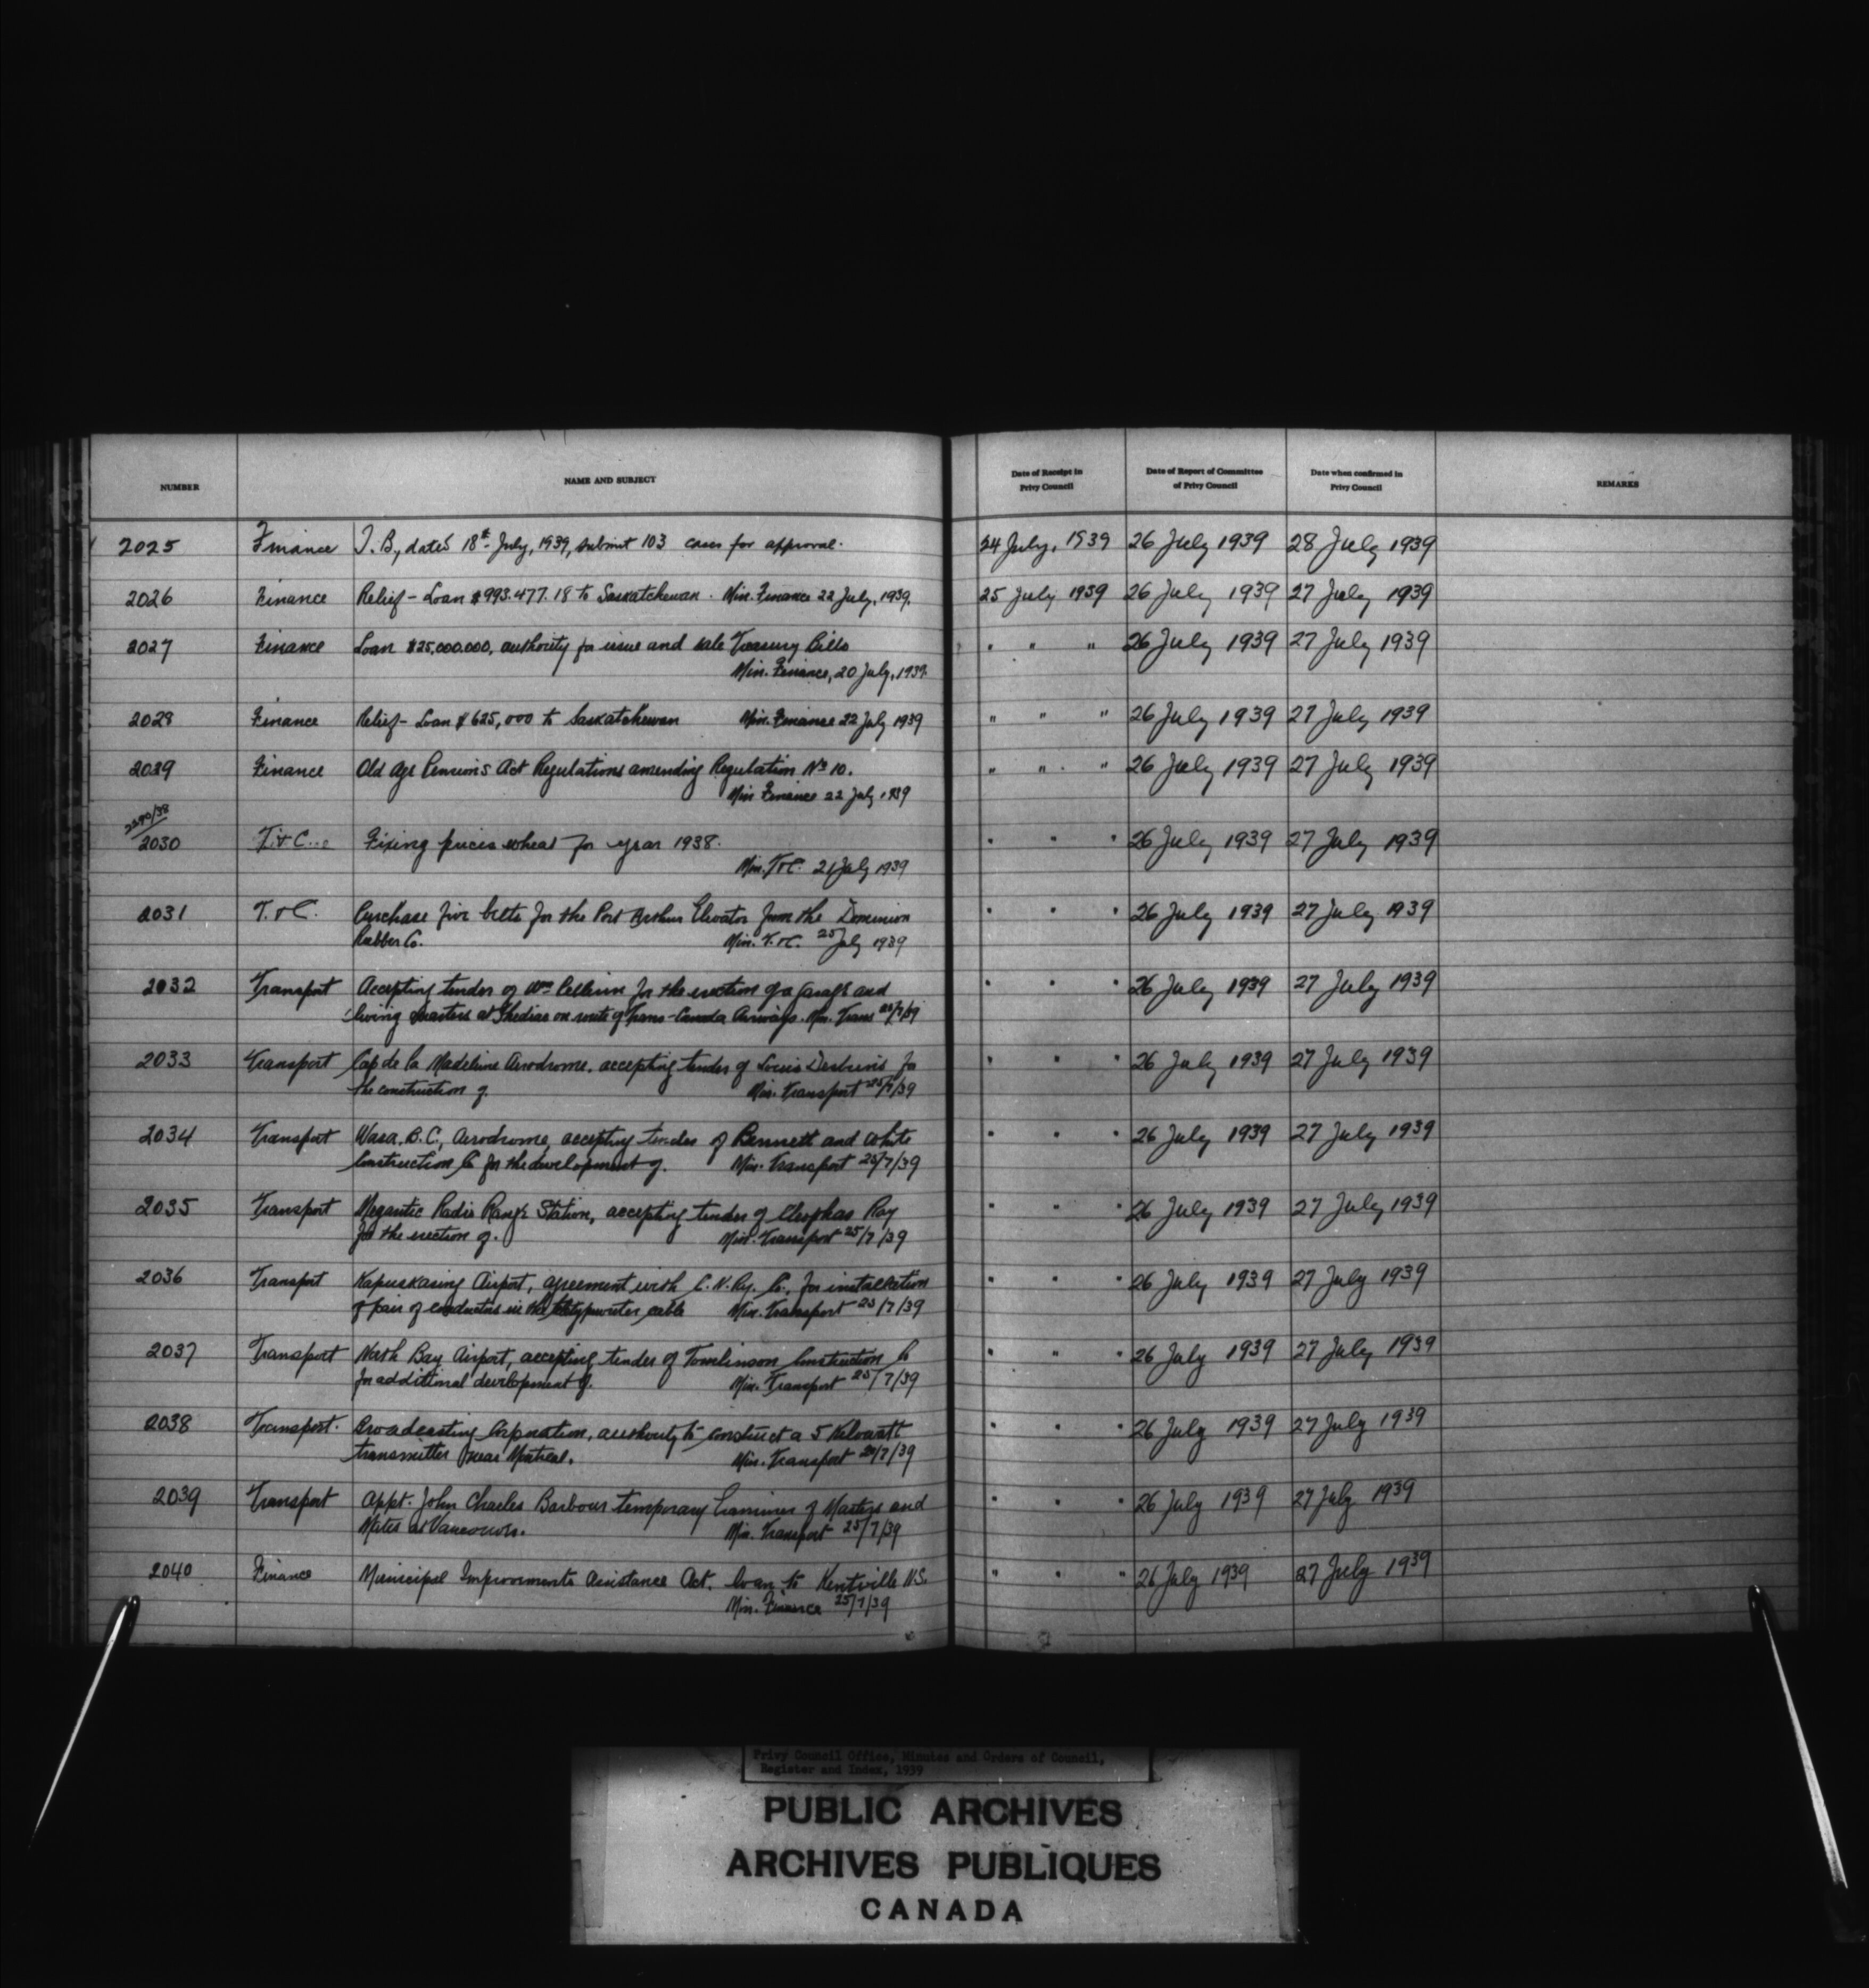 NUMBER NAME AND SUBJECT Date of Receipt in Privy Council Date of Report of Committee of Privy Council Date when confirmed in Privy Council REMARKS
2025 Finance T. B, dated 18th July, 1939, submit 103 cases for approval. 24 July, 1939 26 July 1939 28 July 1939
2026 Finance Relief - Loan $993.477.18 to Saskatchewan. Min. Finance 22 July, 1939. 25 July 1939 26 July 1939 27 July 1939
2027 Finance Loan $25,000.000, authority for issue and sale Treasury Bills " " " 26 July 1939 27 July 1939
Min. Finance, 20 July, 1939.
2028 Finance Relief - Loan $625,000 to Saskatchewan Min. Finance 22 July 1939 " " " 26 July 1939 27 July 1939
2029 Finance Old Age Pensions Act Regulations amending Regulation No 10. " " " 26 July 1939 27 July 1939
Min Finance 22 July 1939
2290/38
2030 T. & C. Fixing prices wheat for year 1938. " " " 26 July 1939 27 July 1939
Min. T&C. 21 July 1939
2031 T. & C. Purchase five belts for the Port Arthur Elevator from the Dominion " " " 26 July 1939 27 July 1939
Rubber Co. Min. T. &C. 25 July 1939
2032 Transport Accepting tender of Wm Pellerin for the erection of a garage and " " " 26 July 1939 27 July 1939
living quarters at Shediac on route of Trans-Canada Airways. Min. Trans 25/7/39
2033 Transport Cap de la Madeleine Aerodrome, accepting tender of Louis for " " " 26 July 1939 27 July 1939
the construction of. Min. Transport 25/7/39
2034 Transport Wasa, B.C., Aerodrome, accepting tender of Bennett and White " " " 26 July 1939 27 July 1939
Construction Co for the development of. Min. Transport 25/7/39
2035 Transport Megantic Radio Range Station, accepting tender of Cleophas Roy " " " 26 July 1939 27 July 1939
for the erection of. Min. Transport 25/7/39
2036 Transport Kapuskasing Airport, agreement with C.N.Ry. Co., for installation " " " 26 July 1939 27 July 1939
of pair of conductors in the teletypewriter cable Min. Transport 25/7/39
2037 Transport North Bay Airport, accepting tender of Tomlinson Construction Co " " " 26 July 1939 27 July 1939
for additional development of. Min. Transport 25/7/39
2038 Transport. Broadcasting Corporation, authority to construct a 5 Kilowatt " " " 26 July 1939 27 July 1939
transmitter near Montreal. Min. Transport /7/39
2039 Transport Appt. John Charles Barbour temporary Examiner of Masters and " " " 26 July 1939 27 July 1939
Mates at Vancouver. Min. Transport 25/7/39
2040 Finance Municipal Improvements Assistance Act. loan to Kentville N.S. " " " 26 July 1939 27 July 1939
Min. Finance 25/7/39
Privy Council Office, Minutes and Orders of Council,
Register and Index, 1939
PUBLIC ARCHIVES
ARCHIVES PUBLIQUES
CANADA